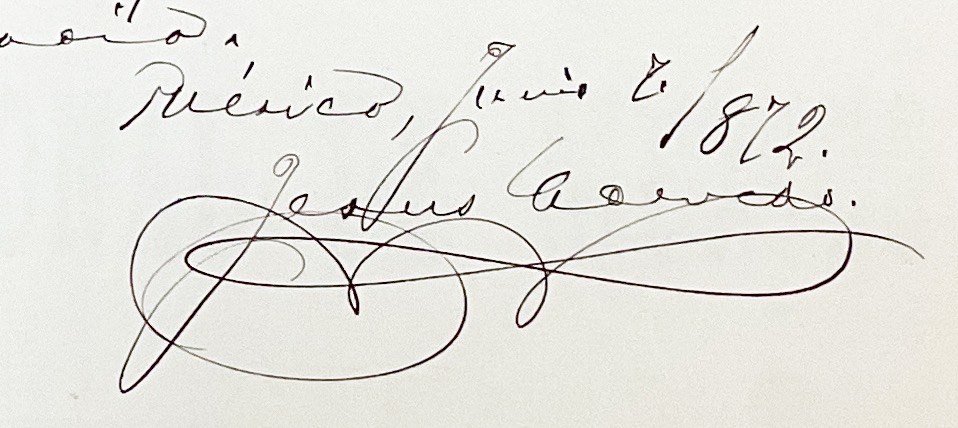 México, Junio 7. 1872.
Jesus Acevedo.